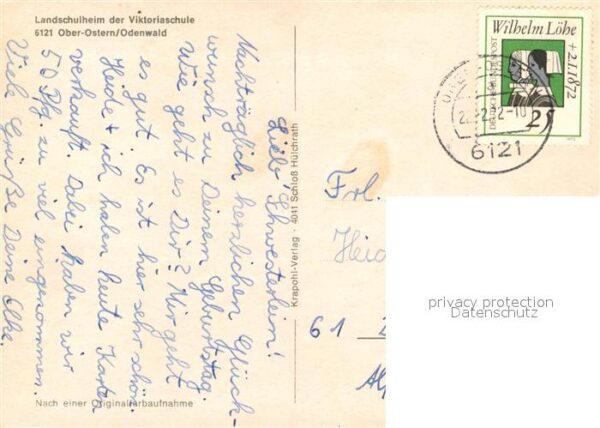 Landschulheim der Viktoriaschule
6121 Ober-Ostern/Odenwald
Liebe Schwesterlein!
Nachträglich herzlichen Glück-
wunsch zu Deinem Geburtstag.
Wie geht es Dir? Mir geht
es gut. Es ist hier sehr schön.
Heide + ich haben heute Karten
verkauft. Dabei haben wir
50 Pfg. zu viel eingenommen.
Viele Grüße Deine Elke.
Nach einer Originalfarbaufnahme
Krapohl-Verlag · 4011 Schloß Hülchrath
Wilhelm Löhe
+ 2.1.1872
DEUTSCHE BUNDESPOST
25
6121
Frl.
Heid
61
privacy protection
Datenschutz